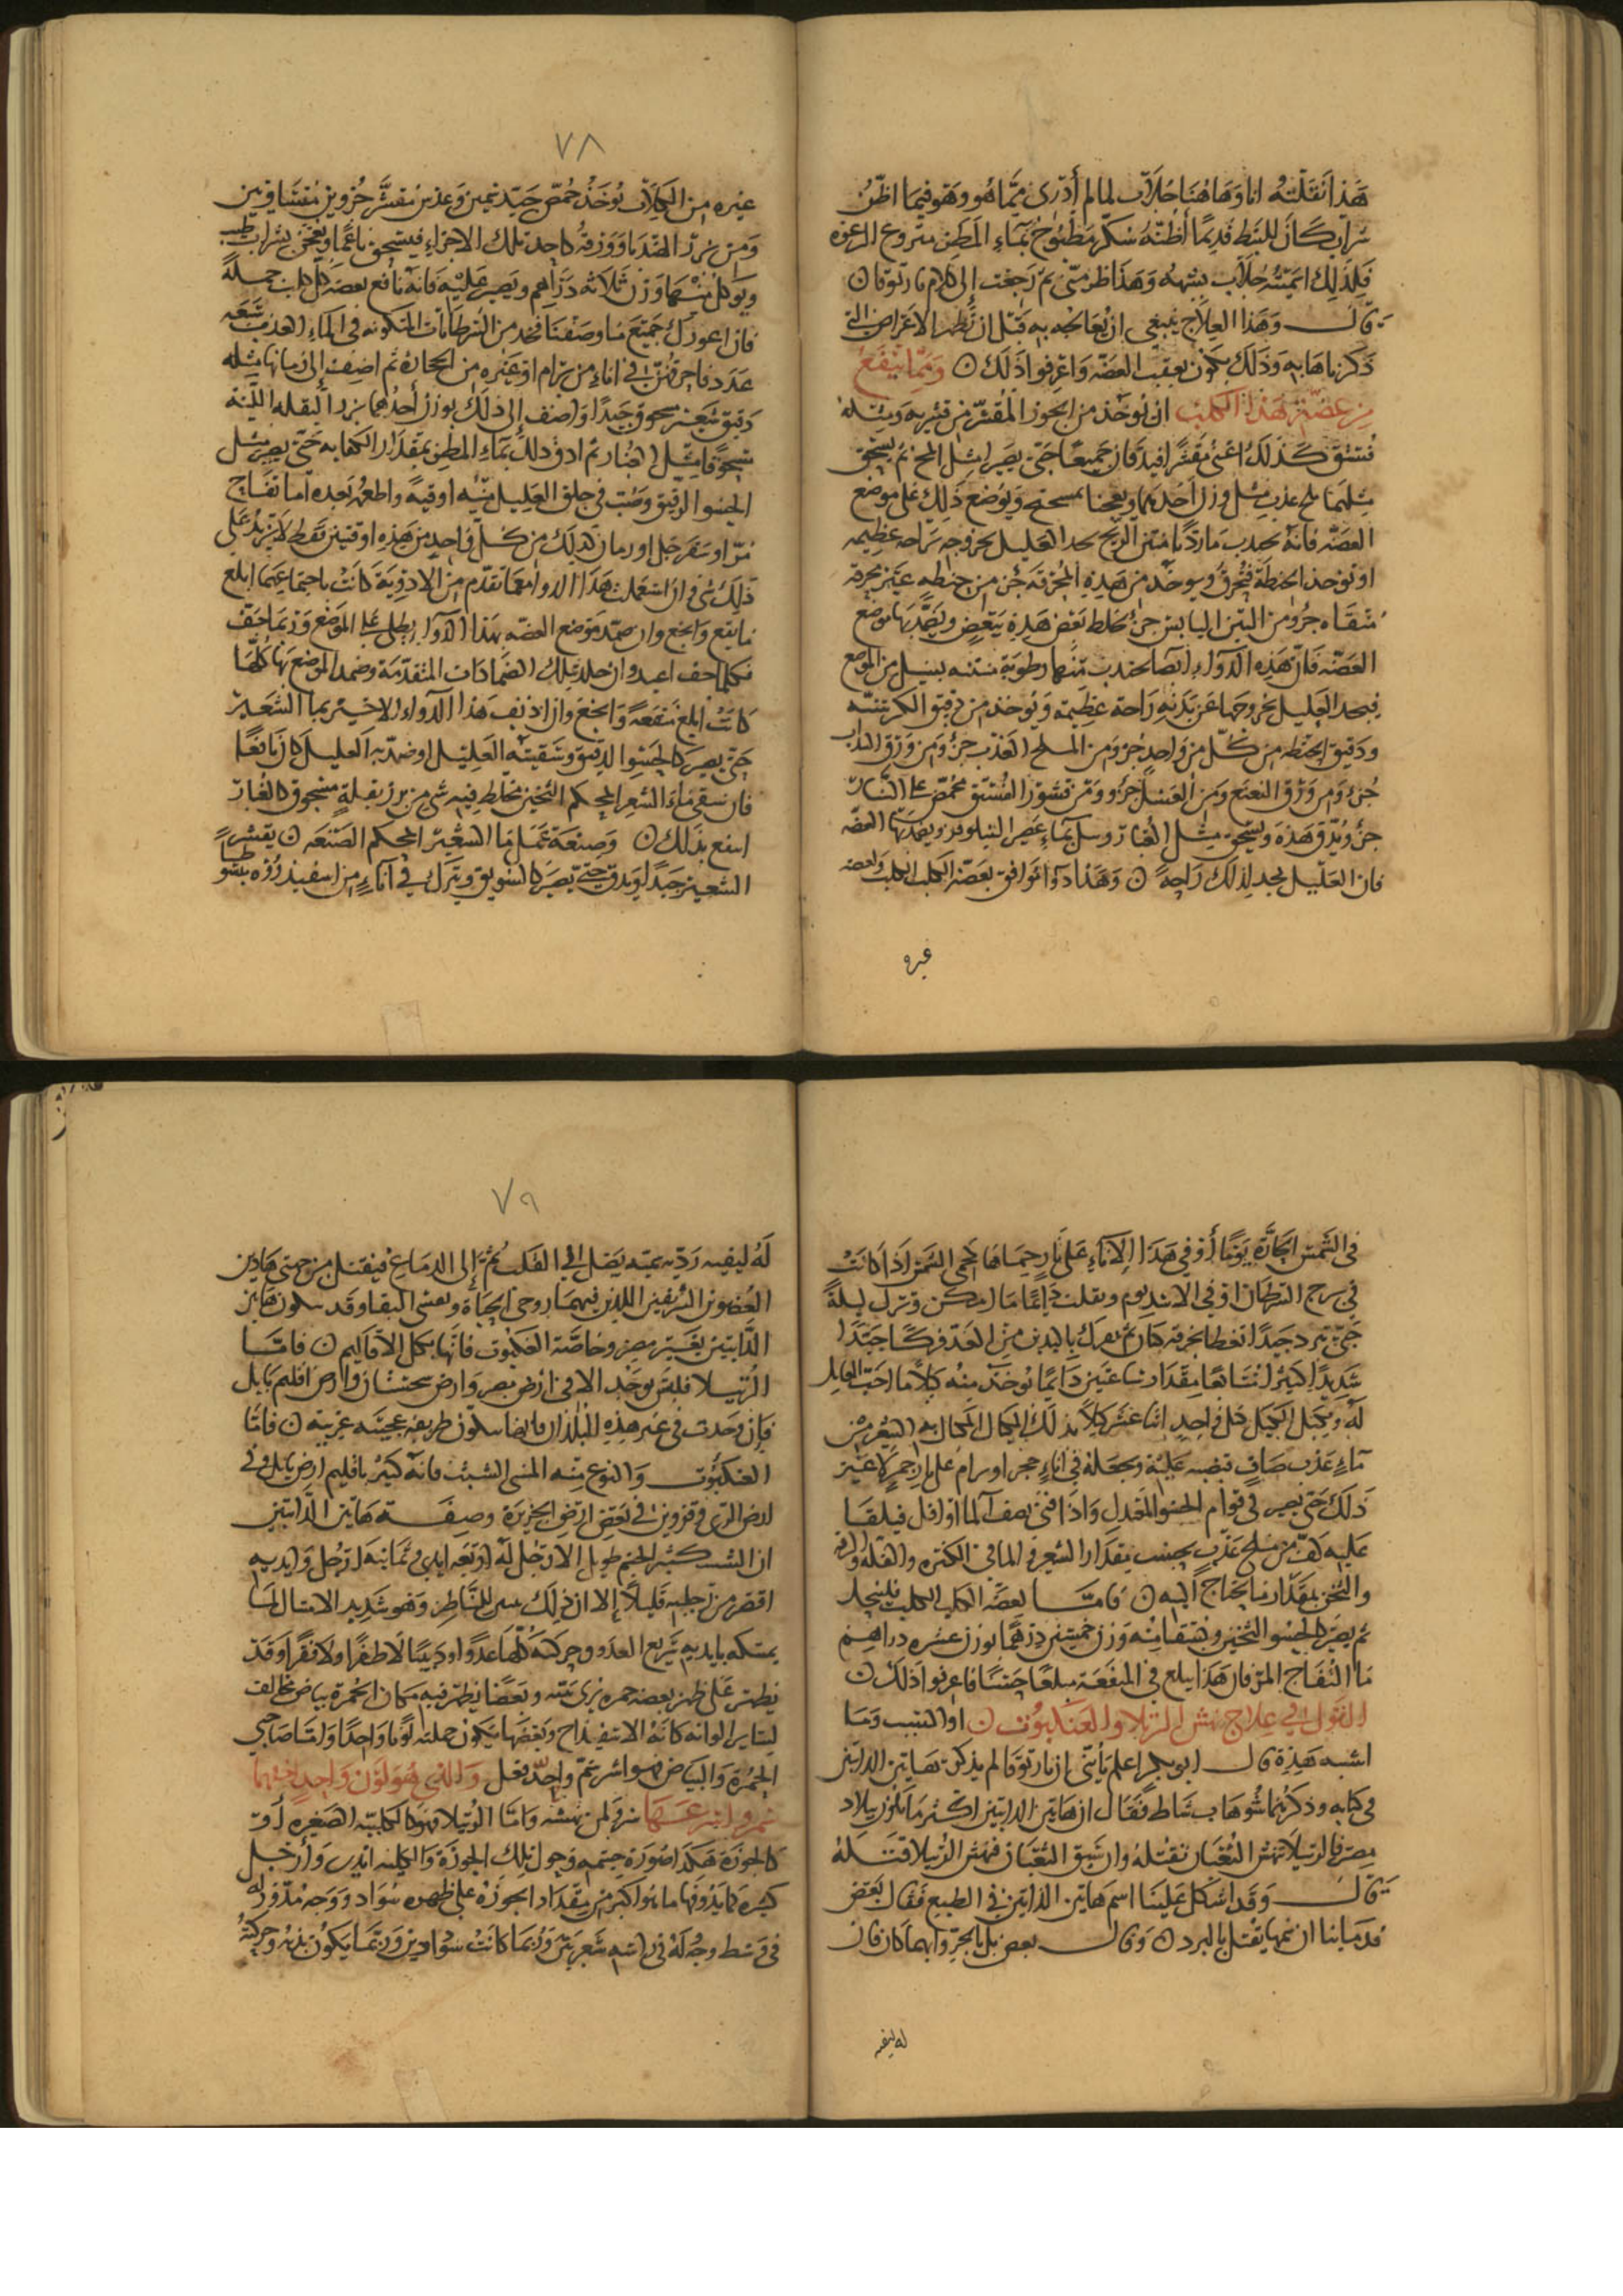 هذا نقلته انا وهاهنا جلاب لما لم أدرى مما هو وهو فيما اظن
شراب كان للنبط قديما أظنه سكر مطبوخ بماء المطر
فلذلك اسميته جلاب بشبهه وهذا ظن منى ثم رجعت إلى كلام ياربوقا
قال وهذا العلاج ينبغي ان يعالج به قبل ان تظهر الاعراض التي
ذكرناها به وذلك يكون بعقيب العضه واعرفوا ذلك ومما ينفع
من عضة هذا الكلب ان يوخذ من الجوز المقشر من قشريه ومثله
فستق كذلك اعنى مقشر جميعا حتى يصيرا مثل المخ ثم يسحق
مثلهما ملح عذب مثل وزن أحدهما ويعجنا ويوضع ذلك على موضع
العضه فانه يجذب منتن الريح يجد العليل بخروجه راحه عظيمه
او توخذ الحنطة فتحرق ويوخذ من هذه المحرقه جزء من حنطه غير محرقه
منقاه جزء ومن التين اليابس جزء يخلط بعض هذه ببعض ويضمد بها موضع
العضه فان هذه الدواء ايضا تجذب منها رطوبة منتنه تسيل من الموضع
فيجد العليل بخروجها عن بدنه راحة عظيمه ويوخذ من دقيق الكرسنه
ودقيق الحنطه من كل واحد جزء ومن الملح العذب جزء ومن ورق السداب
جزء ومن ورق النعنع ومن العسل جزء ومن قشور الفستق محمص على النار
جزء ويدق هذه ويسحق مثل الغبار بماء عصير النيلوفر ويضمد بها العضه
فان العليل يجد لذلك راحه وهذا دواء يوافق بعضة الكلب الكلب ولعضه
غيره
٧٨
غيره من الكلاب يوخذ حمص جيد سمين وعدس مقشر جزوين متساويين
ومن بزر وزنه كاحد تلك الاجزاء فيسحق ناعما ويعجن بشراب طيب
ويوكل منها وزن ثلاثه دراهم ويصبر عليه فانه نافع بعضة كل كلب جملة
فان اعوزك جميع ما وصفنا فخذ من السرطانات المتكونه في الماء العذب تسعه
عدد فاحرقهن في اناء من برام او غيره من الحجاره ثم اضف إلى رمادها مثله
دقيق شعير مسحوق جيدا واضف إلى ذلك بوزن أحدهما بزر البقله اللينه
مسحوقا مثل الغبار ثم ادف ذلك بماء المطر بمقدار حتى يصير مثل
الحسو الرقيق وصب في حلق العليل منه اوقيه واطعمه بعده اما تفاح
مز او سفرجل او رمان كذلك من كل واحد من هذه اوقيتين فقط لا تزيد على
ذلك شى فان استعملت هذا الدوا مع ما تقدم من الادوية كانت باجتماعهما ابلغ
ما ينفع وانجع وان ضمد موضع العضه بهذا الدوا يطلى على الموضع وربما جف
فكلما جف اعيد وان تلك الضمادات المتقدمة وضمد الموضع بها كلها
كانت ابلغ منفعة وانجع وان اديف هذا الدواء الاخير بماء الشعير
حتى يصير كالحسو الرقيق وسقيته العليل او ضمد به العليل كان نافعا
فان سقى ماء الشعير المحكم الثخين مخلط فيه شى من بزر بقلة مسحوق كالغبار
انتفع بذلك وصنعة عمل ماء الشعير المحكم الصنعه يقشر
الشعير جيدا ويدق حتى يصير كالسويق ويترك في آناء من اسفيذروه
في الشمس الحاره يوما أو في هذا الاناء على نار حماها كحمى الشمس اذا كانت
في برج السرطان او في الاسد يوم ويقلب دايما ما امكن وترك ليلة
حتى تبرد جيدا تغطا بخرقه كتان ثم يفرك باليدين من الغد فركا جيدا
شديدا كثيرا مقدار ساعتين دايما يوخذ منه كيلا ما احب العامل
له ويكيل الكيل كل واحد اثنا عشر كيلا بذلك المكيال المكال به الشعير من
مآء عذب صاف تصبه عليه وتجعله في اناء حجر او برام على نار جمر لا غير
ذلك حتى يصير في قوام الحسو المعتدل واذا فنى نصف الما او اقل فيلقا
عليه كف من ملح عذب بحسب مقدار الشعير والما في الكثره والقله والرقه
والثخن بمقدار ما يحتاج اليه فاما لعضة الكلب الكلب
ثم يصير كالحسو الثخين ويسقا منه وزن خمسين درهما بوزن عشره دراهم
ما التفاح المز فان هذا يبلغ في المنفعه مبلغا حسنا فاعرفوا ذلك
القول في علاج نهش الرتيلا والعنكبوت او الشبث وما
اشبه هذه قال ابو بكر اعلم يا بنى ان ياربوقا لم يذكر هاتين الدابتين
في كتابه وذكرهما سوهاب شاط فقال ان هاتين الدابتين اكثر ما يكون ببلاد
مصر فالرتيلا تنهش الثعبان تقتله وان سبق الثعبان فنهش الرتيلا قتله
قال وقد اشكل علينا اسم هاتين الدابتين في الطبع فقال بعض
قدمائنا ان سمها يقتل بالبرد وقال بعض بل بالحر وايهما كان فان
له ليفيه
٧٩
له ليفيه ردّيه سميه يصل إلى القلب ثم إلى الدماغ فيقتل من جهتى هاذين
العضوين الشريفين اللذين فيهما روحى الحياة ونفس البقا وقد تكون هاتين
الدابتين بغير مصر وخاصة العنكبوت فانها بكل الاقاليم فاما
الرتيلا فليس توجد الا في ارض مصر وارض سجستان وارض اقليم بابل
فان وجدت في غير هذه البلدان فانما تكون طريفه عجيبه غريبه فاما
العنكبوت والنوع منه المسمى الشبث فانه كثير باقليم ارض بابل وفي
ارض الرى وقزوين وفي بعض ارض الجزيرة وصفة هاتين الدابتين
ان الشبث كبير الجسم طويل الارجل له اربعه ايدى وثمانيه ارجل وايديه
اقصر من ارجليه قليلا إلا ان ذلك يبين للناظر وهو شديد الامساك لما
يمسكه بايديه سريع العدو وحركته كلها عدوا ودبيبا لا طفرا ولا قفزا وقد
يظهر على ظهر بعضه حمره ترى بينه وبعضا يظهر فيه مكان الحمرة بياض مخالف
لساير الوانه كانه الاسفيداج وبعضها يكون جملته لونا واحدا وامّا صاحبى
الحمرة والبياض فهو اشر سمّ واحدّ فعل والذى هو لون واحد
شرو لمن نهشه واما الرتيلا فهو كالكلبه الصغيره أو
كالجوزة هكذا صورة جسمه وحول تلك الجوزة ايدى وأرجل
كثيره منها ما هو اكبر من مقدار الجوزه على ظهره سواد ووجه مدور له
في وسط وجهه في راسه شعرتين وربما كانت سوادين وربما يكون بدنه وحركته